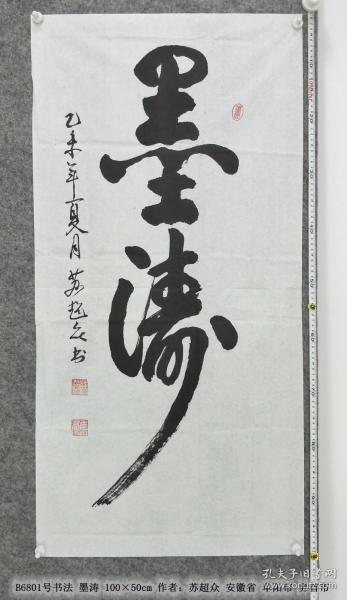 墨涛
乙未年夏月 苏超众书
B6801号书法 墨涛 100×50cm 作者：苏超众 安徽省
孔夫子旧书网